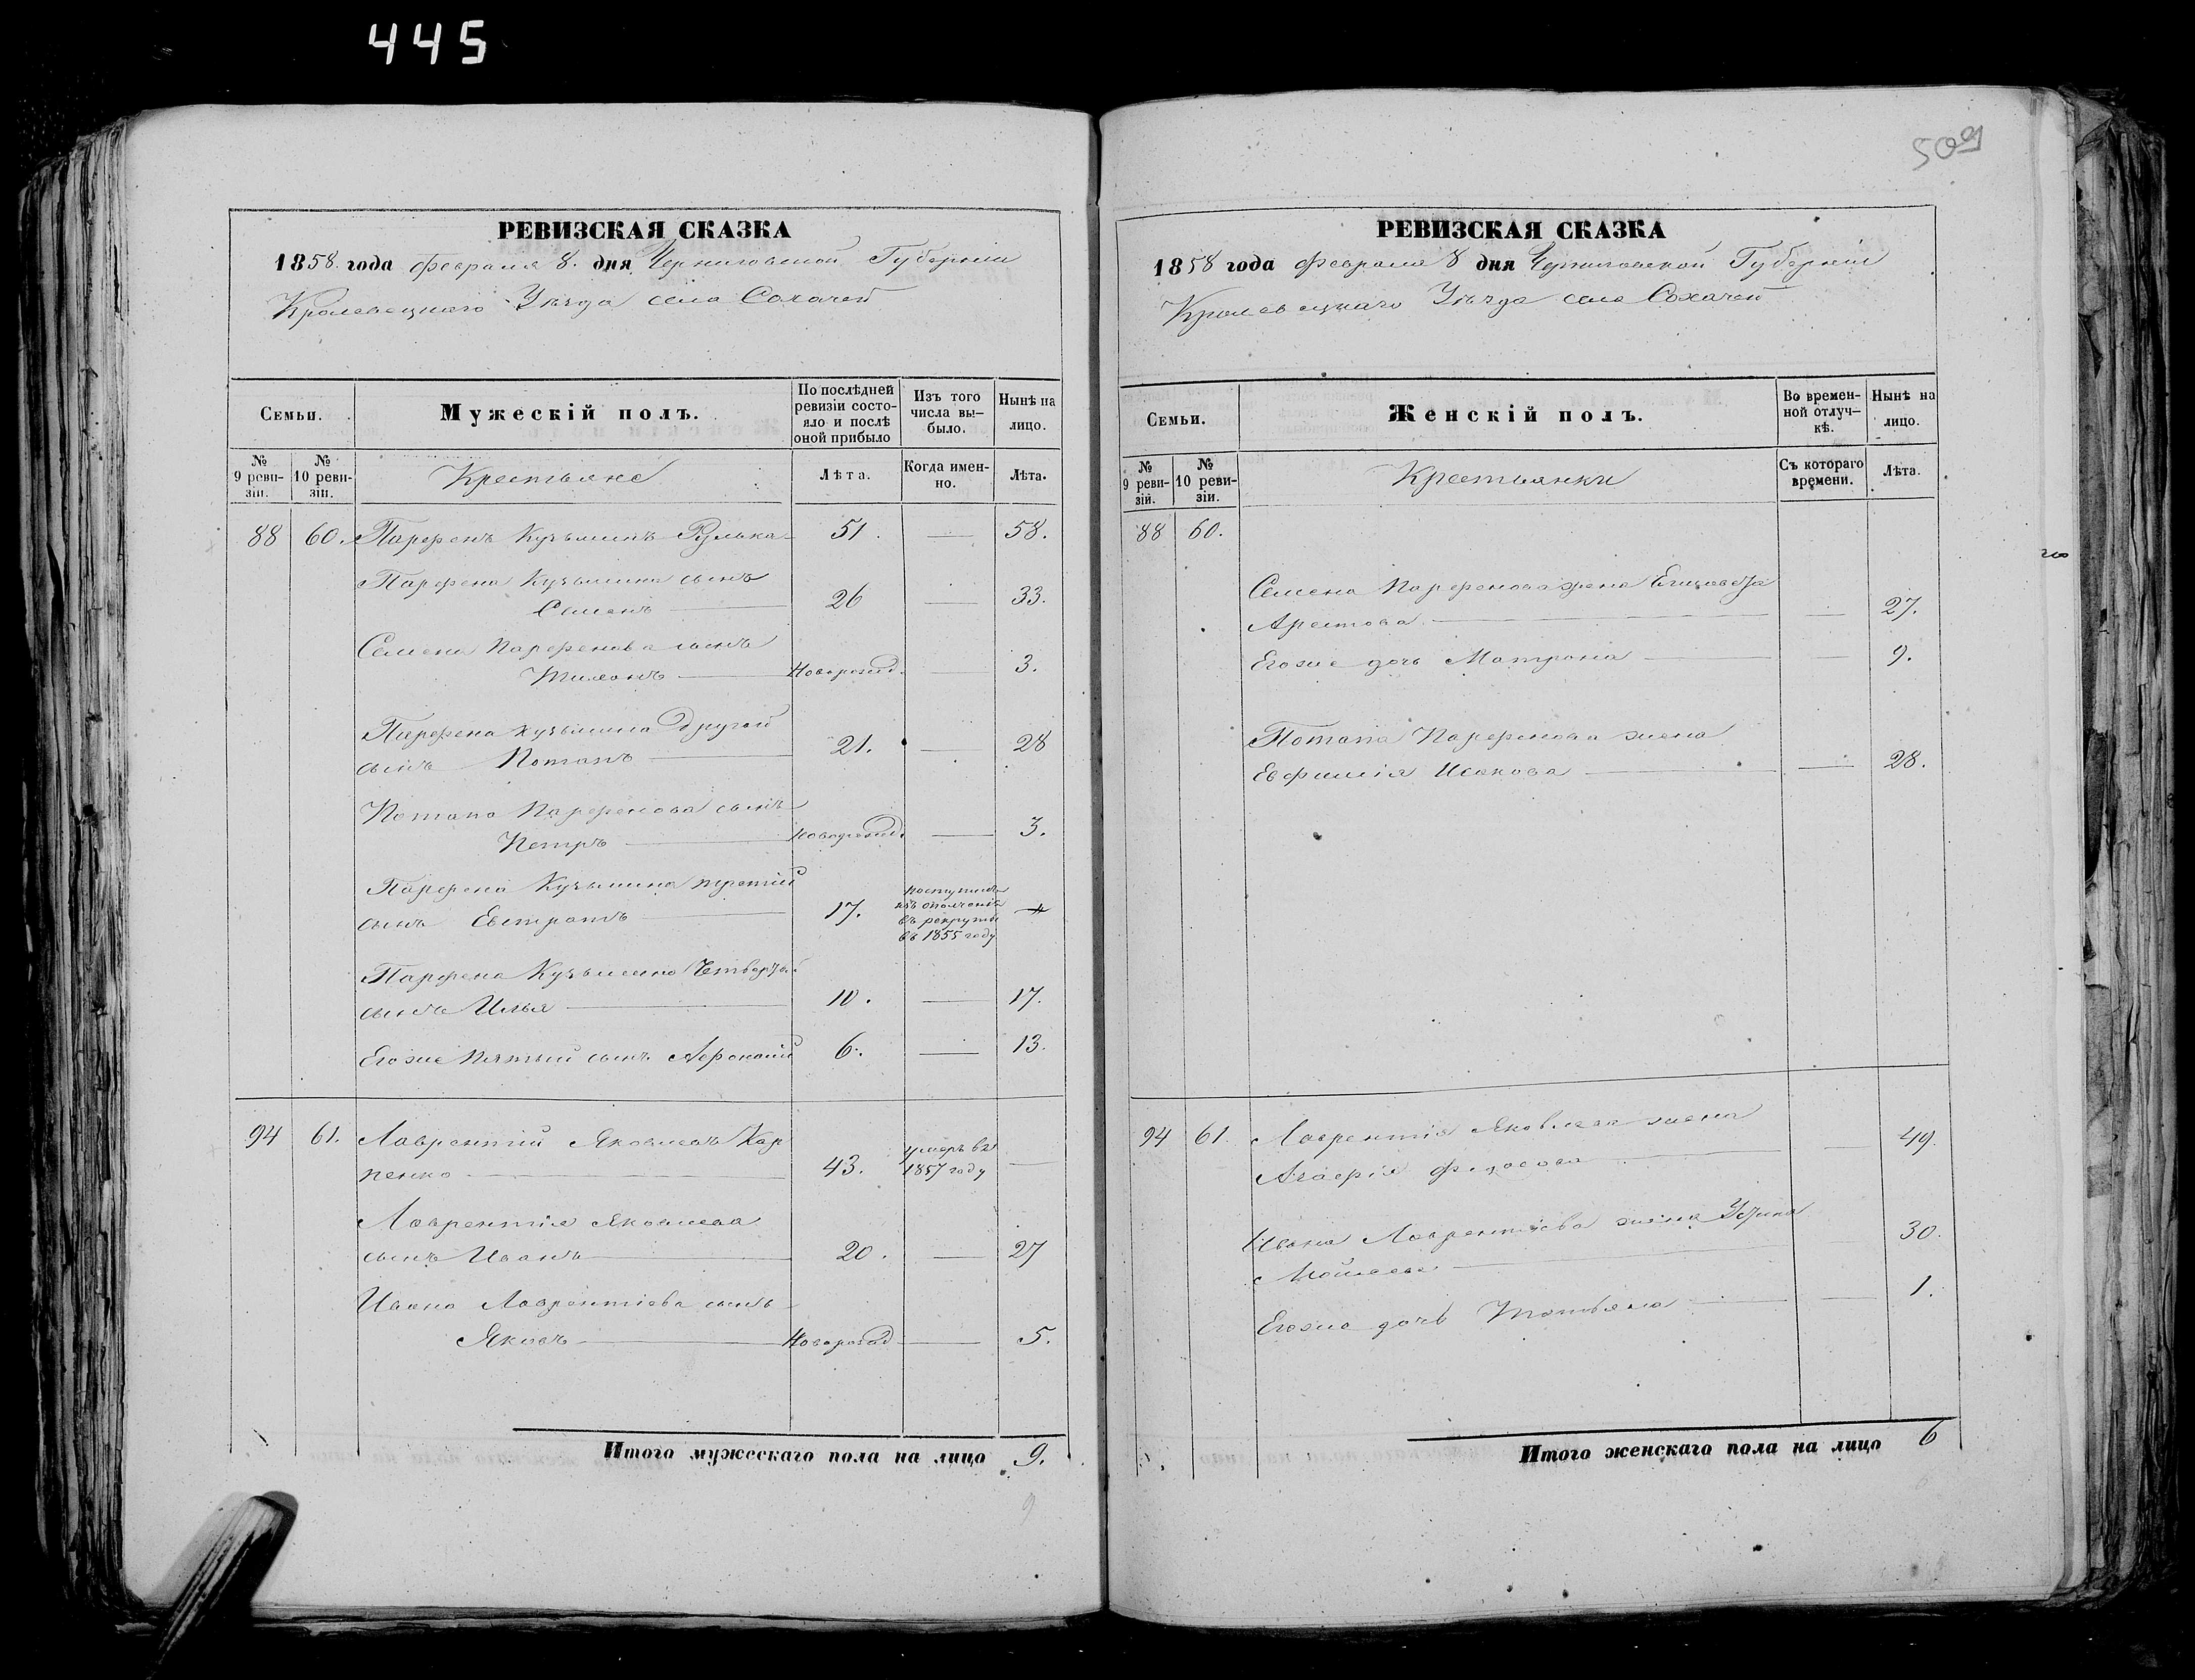 445
509
РЕВИЗСКАЯ СКАЗКА
1858. года февраля 8. дня Черниговской Губерніи
Кролевецкаго Уѣзда села Сохачей
Семьи.
Мужескій полъ.
По послѣдней
ревизіи состо-
яло и послѣ
оной прибыло
Изъ того
числа вы-
было.
Нынѣ на
лицо.
№
9 реви-
зіи.
№
10 реви-
зіи.
Крестьяне
Лѣта.
Когда имен-
но.
Лѣта.
88 60. Парфенъ Кузьминъ 51. — 58.
Парфена Кузьмина сынъ
Семенъ 26 — 33.
Семена Парфенова сынъ
Новорожд. — 3.
Парфена Кузьмина другой
сынъ Потапъ 21. — 28
Потапа Парфенова сынъ
Петръ Новорожд. — 3.
Парфена Кузьмина третій
сынъ Евстратъ 17.
поступилъ
въ рекруты
въ 1855 году
Парфена Кузьмина Четвертый
сынъ Илья 10. — 17.
Егоже пятый сынъ 6. — 13.
94 61. Лаврентій Яковлевъ Кар
пенко 43. умеръ въ
1857 году —
Лаврентія Яковлева
сынъ Иванъ 20. — 27
Ивана Лаврентіева сынъ
Яковъ Новорожд — 5.
Итого мужескаго пола на лицо 9.
9
РЕВИЗСКАЯ СКАЗКА
1858 года февраля 8 дня Черниговской Губерніи
Кролевецкаго Уѣзда села Сохачей
Семьи.
Женскій полъ.
Во времен-
ной отлуч-
кѣ.
Нынѣ на
лицо.
№
9 реви-
зій.
№
10 реви-
зіи.
Крестьянки
Съ котораго
времени.
Лѣта.
88 60.
Семена Парфенова жена Елизавета
— 27.
Егоже дочь Матрона — 9.
Потапа Парфенова жена
Евфимія Исакова — 28.
94 61. Лаврентія Яковлева жена
— 49.
Ивана Лаврентіева жена
30.
Егоже дочь Татьяна — 1.
Итого женскаго пола на лицо 6